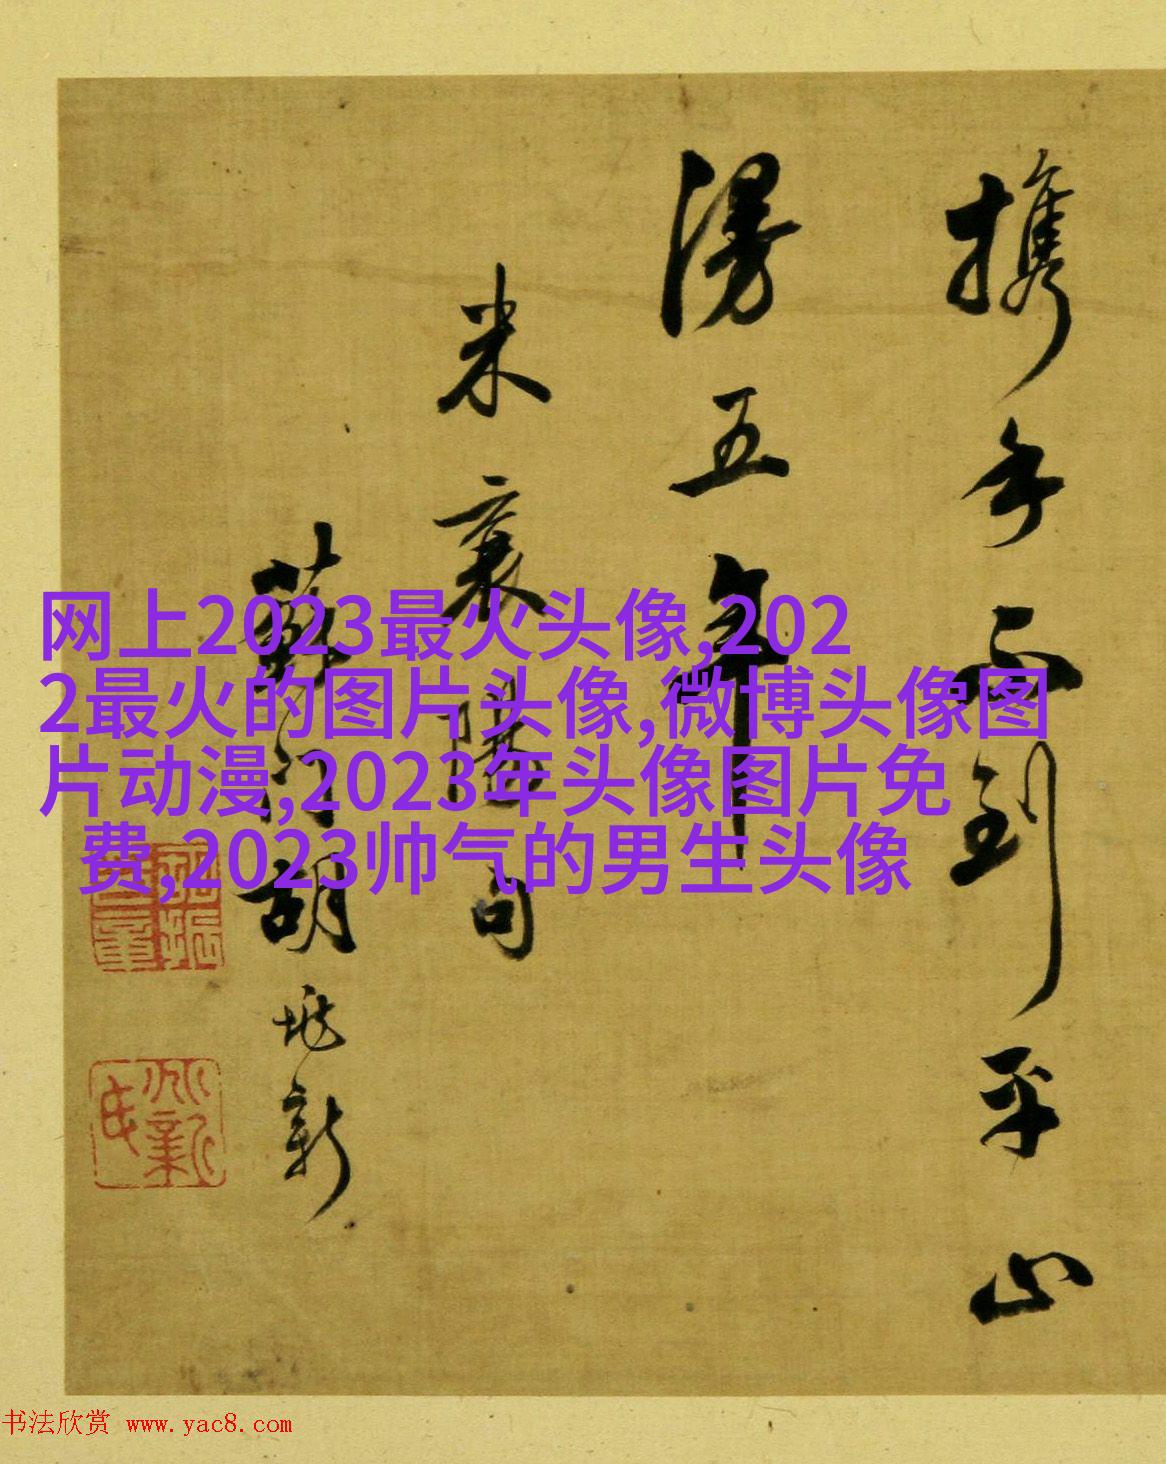 攜手
到平山
漫五年
米襄陽句
胡垗新
网上2023最火头像,202
2最火的图片头像,微博头像图
片动漫,2023年头像图片免
费,2023帅气的男生头像
书法欣赏 www.yac8.com